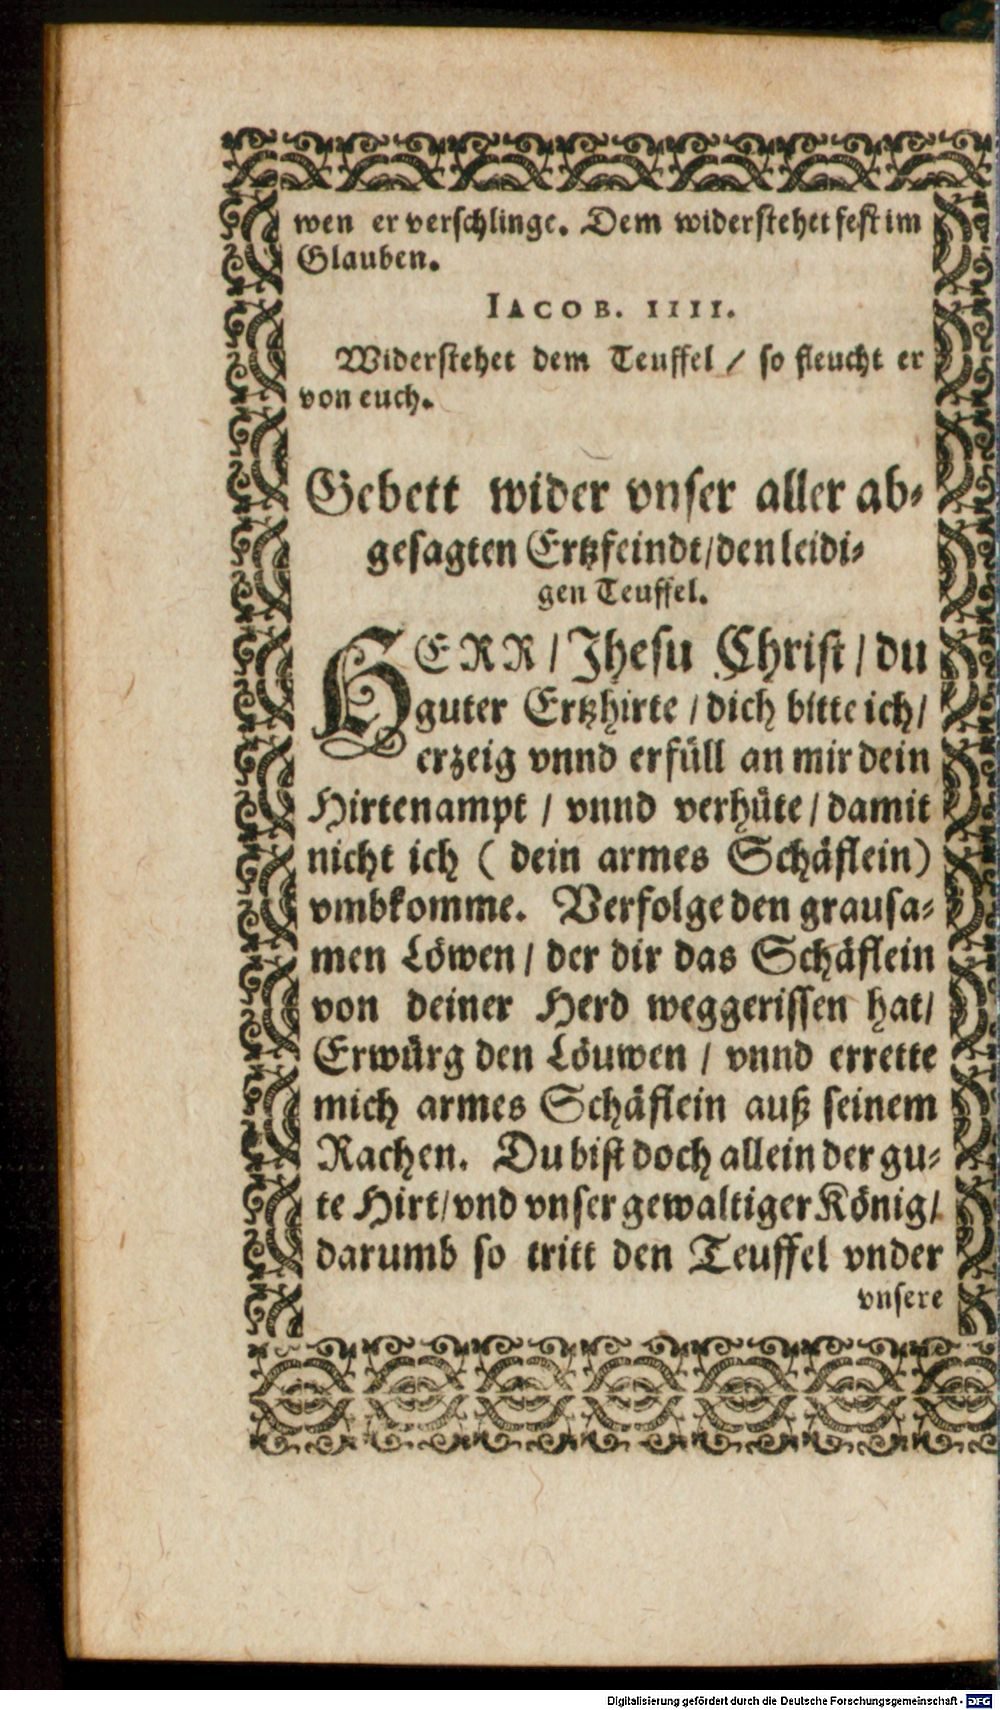 wen er verschlinge. Dem widerstehet fest im
Glauben.
IACOB. IIII.
Widerstehet dem Teuffel / so fleucht er
von euch.
Gebett wider vnser aller ab-
gesagten Ertzfeindt/den leidi-
gen Teuffel.
HERR / Jhesu Christ / du
guter Ertzhirte / dich bitte ich /
erzeig vnnd erfüll an mir dein
Hirtenampt / vnnd verhüte / damit
nicht ich ( dein armes Schäflein)
vmbkomme. Verfolge den grausa-
men Löwen / der dir das Schäflein
von deiner Herd weggerissen hat/
Erwürg den Löuwen / vnnd errette
mich armes Schäflein auß seinem
Rachen. Du bist doch allein der gu-
te Hirt/vnd vnser gewaltiger König/
darumb so tritt den Teuffel vnder
vnsere
Digitalisierung gefördert durch die Deutsche Forschungsgemeinschaft - DFG